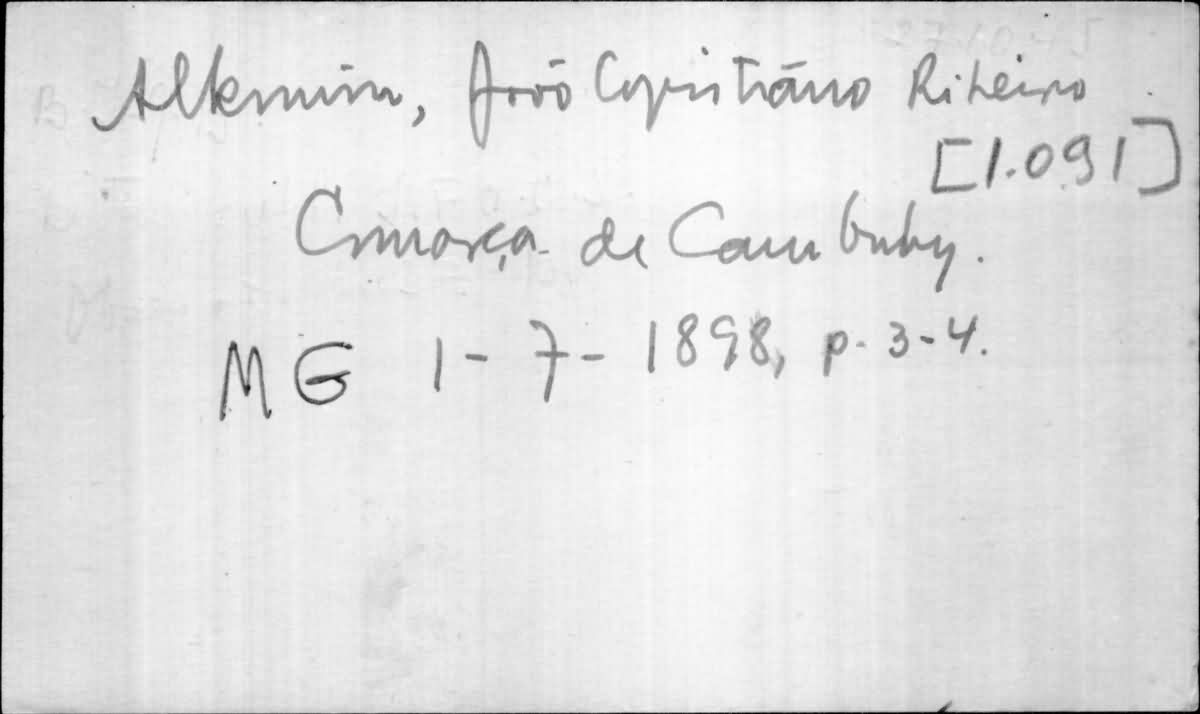 Alkmim, João Capistrano Ribeiro
[1.091]
Comarca de Cambuhy.
MG 1-7-1898, p. 3-4.